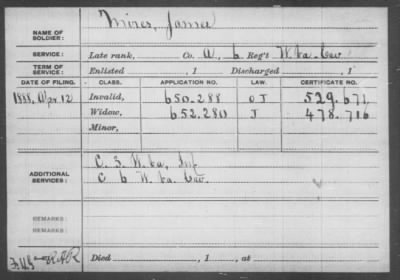 NAME OF SOLDIER: Mires, James
SERVICE: Late rank, Co. A, 6 Reg't W. Va. Cav
TERM OF SERVICE: Enlisted , 1 Discharged , 1
DATE OF FILING. CLASS. APPLICATION NO. LAW. CERTIFICATE NO.
1888, Apr. 12 Invalid, 650.288 O J 529.671
Widow, 652.280 J 478.716
Minor,
ADDITIONAL SERVICES: C. 3. W. Va. Inf
C 6 W. Va. Cav.
REMARKS:
REMARKS:
Died , 1 , at